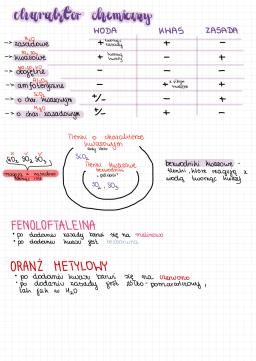 charakter chemiczny
WODA KWAS ZASADA
→ zasadowe + tworząc zasady + -
→ kwasowe + tworząc kwasy - +
→ obojętne - - -
→ amfoteryczne - + +
→ o char. kwasowym +/- - +
→ o char. zasadowym +/- + -
Tlenki o charakterze
kwasowym
SiO₂
Tlenki kwasowe
bezwodniki
SO₂, SO₃
bezwodniki kwasowe -
tlenki, które reagują z
wodą, tworząc kwasy
FENOLOFTALEINA
• po dodaniu zasady barwi się na malinowo
• po dodaniu kwasu jest bezbarwna
ORANŻ METYLOWY
• po dodaniu kwasu barwi się na czerwono
• po dodaniu zasady jest żółto-pomarańczowy,
tak jak w H₂O